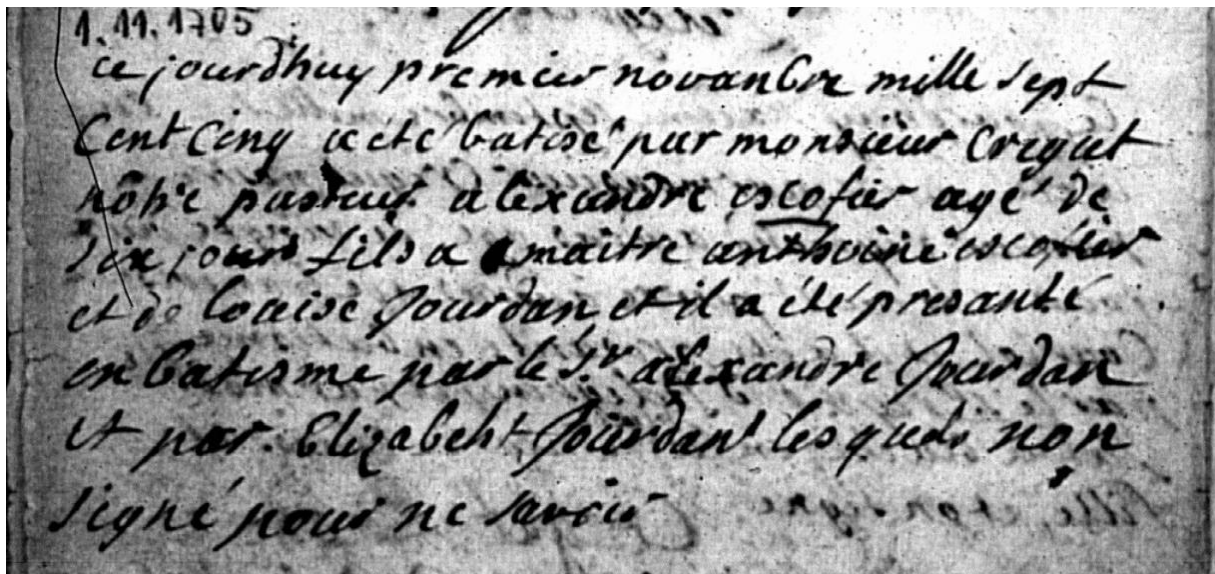 1.11.1705
ce jourdhuy premier novanbre mille sept
Cent Cinq a eté batisé par monsieur Cregut
nôtre pasteur alexandre escofier agé de
six jours fils a maitre anthoine escofier
et de louise Jourdan et il a été presanté
en batisme par le Sr. alexandre Jourdan
et par Elizabeht Jourdant les quels non
signé pour ne savoir